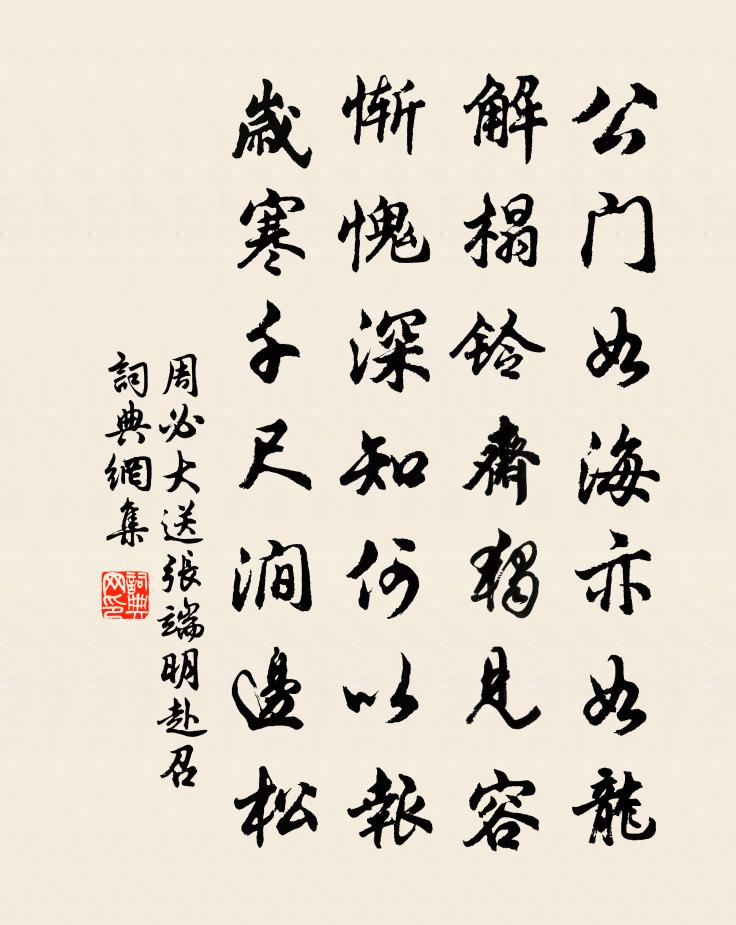 公门如海亦如龍
解榻铃齋獨見容
惭愧深知何以報
歲寒千尺涧邊松
周必大送張端明赴召
詞典網集
詞典网印